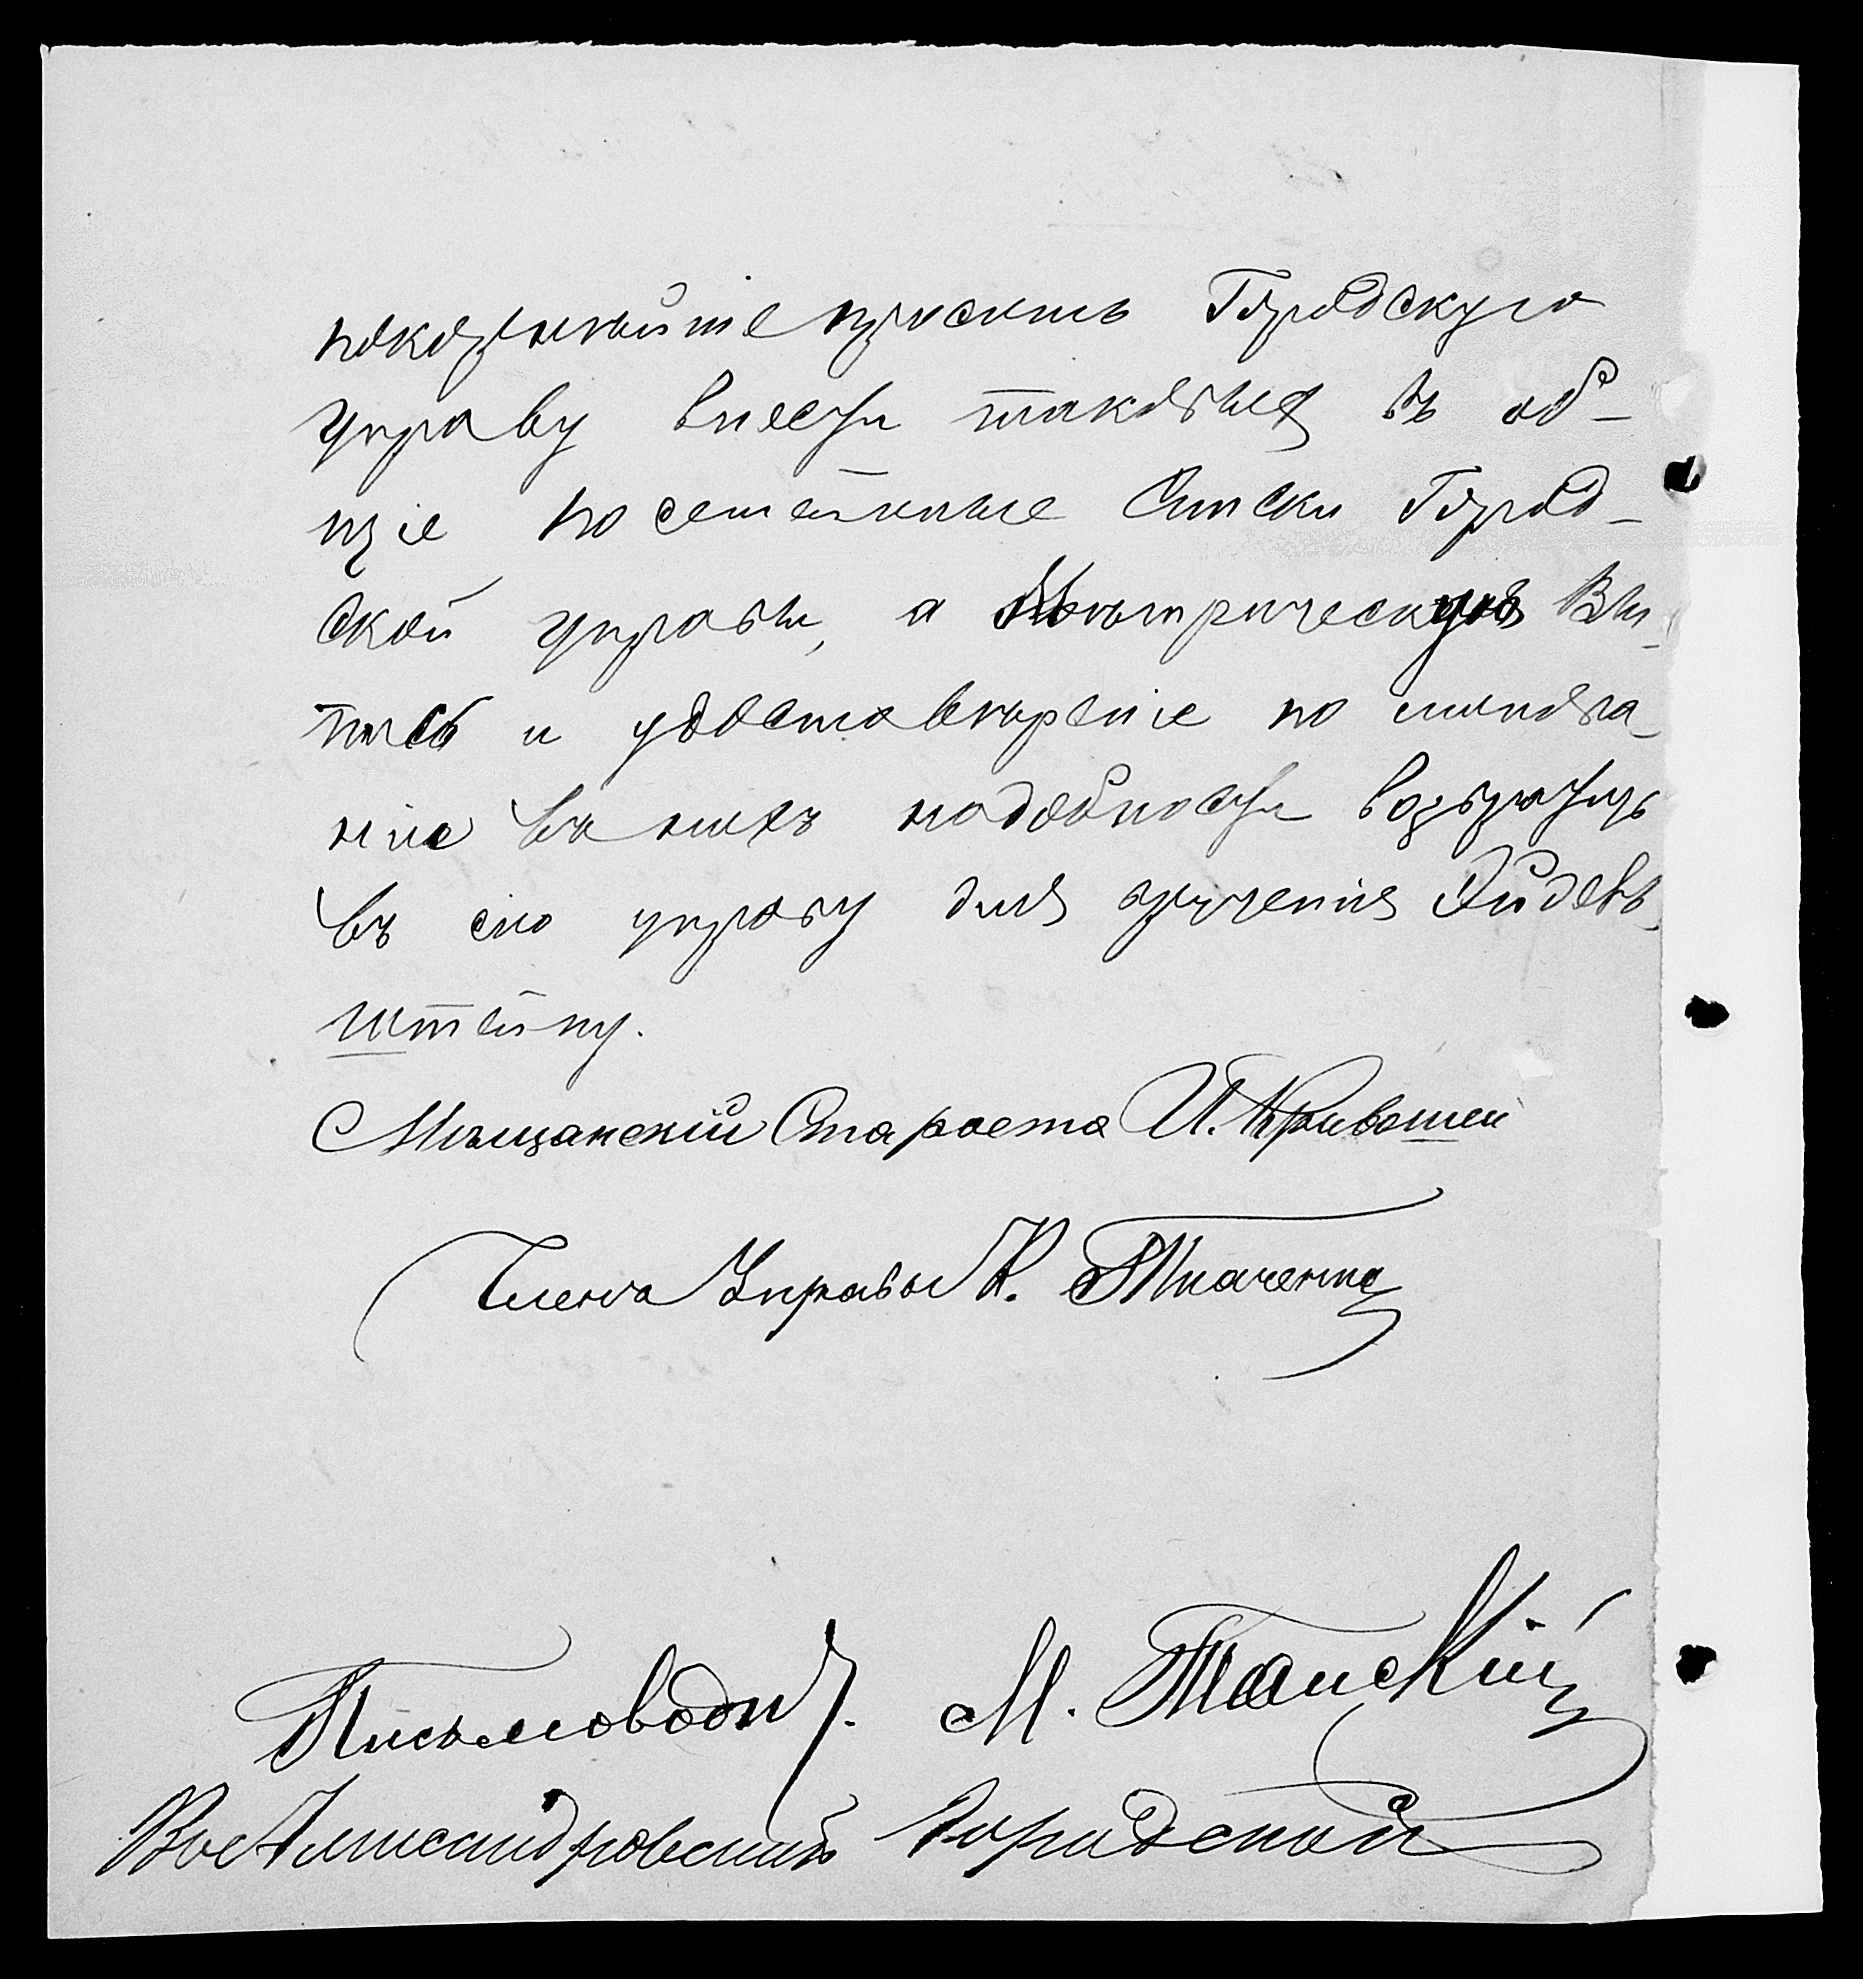 покорнѣйше просить Городскую
управу внести таковыя въ об-
щіе посемейные списки Город-
ской управы, а Метрическую Вы-
пись и удостовѣреніе по минова-
ніи въ нихъ надобности возвратить
въ сію управу для врученія Эйдель-
штейну.
Мѣщанскій Староста И. Кривошей
Членъ Управы К. Ткаченко
Письмоводит. М. Танскій
Городской